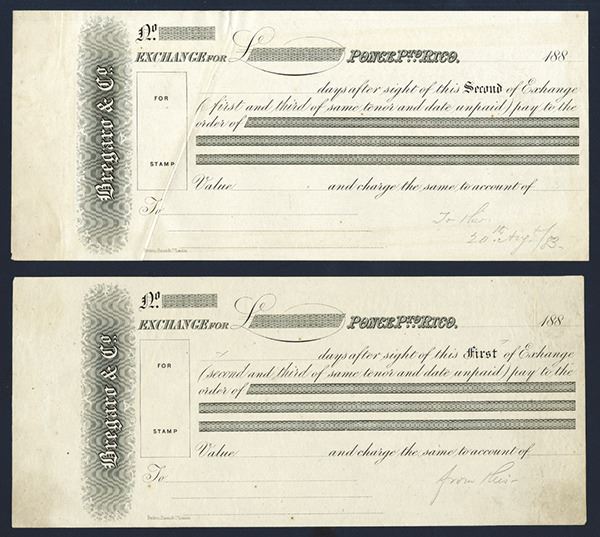 Bregaro & Co.
No.
EXCHANGE FOR £ PONCE, PTO RICO. 188
FOR
STAMP
days after sight of this Second of Exchange
(first and third of same tenor and date unpaid) pay to the
order of
Value and charge the same to account of
To
20th Aug/83
Bregaro & Co.
No.
EXCHANGE FOR £ PONCE, PTO RICO. 188
FOR
STAMP
days after sight of this First of Exchange
(second and third of same tenor and date unpaid) pay to the
order of
Value and charge the same to account of
To
from